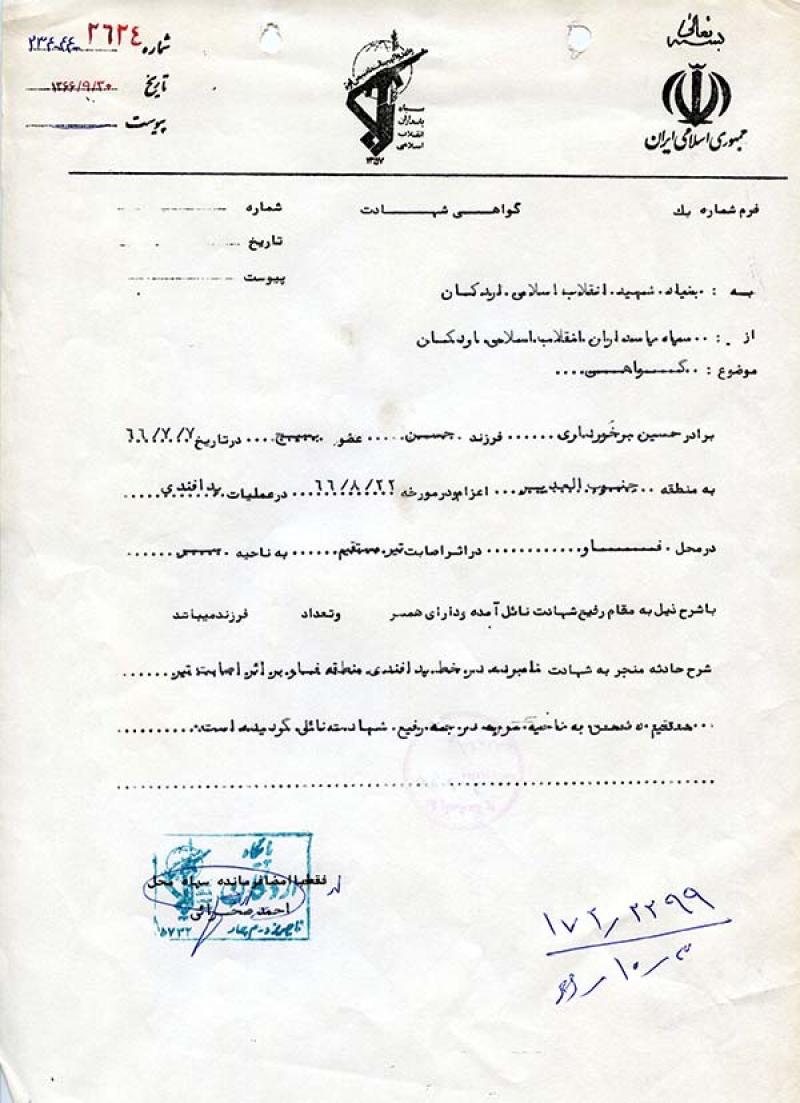 بسمه تعالی
جمهوری اسلامی ایران
سپاه
پاسداران
انقلاب
اسلامی
۱۳۵۷
شماره ۲٦۲٤
تاریخ ۱۳۶۶/۹/۳۰
پیوست
فرم شماره یک گواهی شهادت شماره
تاریخ
پیوست
به : بنیاد شهید انقلاب اسلامی اردکان
از : سپاه پاسداران انقلاب اسلامی اردکان
موضوع : گواهی
برادر حسین برخورداری فرزند حسن عضو بسیج در تاریخ ٦٦/۷/۷
به منطقه جنوب الغدیر اعزام و در مورخه ٦٦/۸/۲۲ در عملیات پدافندی
در محل فاو در اثر اصابت تیر مستقیم به ناحیه سر
با شرح ذیل به مقام رفیع شهادت نائل آمده و دارای همسر و تعداد فرزند میباشد
شرح حادثه منجر به شهادت نامبرده در خط پدافندی منطقه فاو بر اثر اصابت تیر
مستقیم دشمن به ناحیه سر به درجه رفیع شهادت نائل گردیده است
پایگاه
فقط با امضا فرمانده سپاه محل
احمد صحرائی
۵۷۳۲
۱۷۲/۲۲۹۹